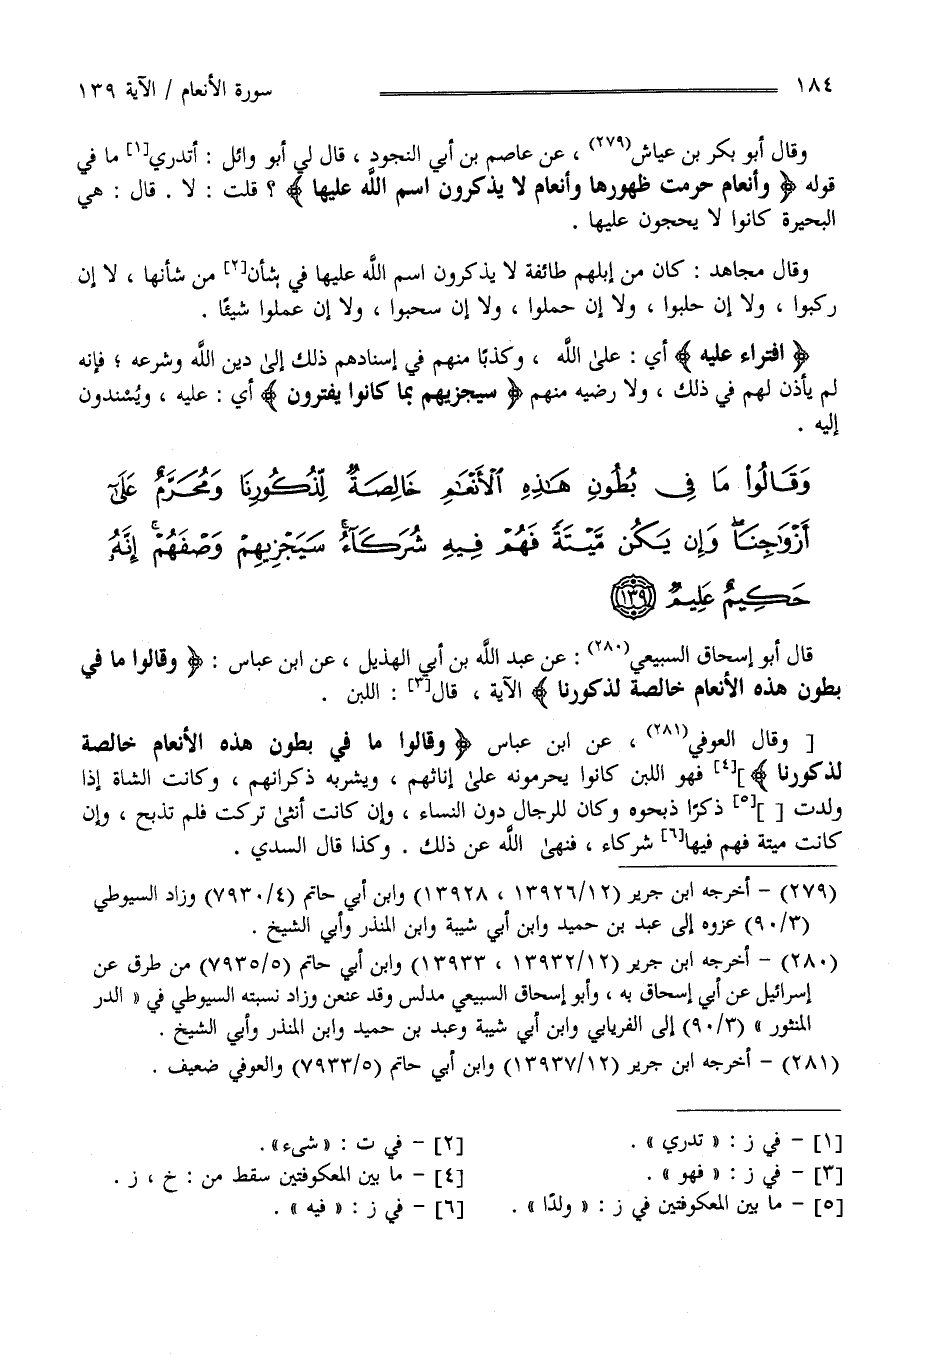 ١٨٤ سورة الأنعام / الآية ١٣٩
وقال أبو بكر بن عياش(٢٧٩) ، عن عاصم بن أبي النجود ، قال لي أبو وائل : أتدري[١] ما في
قوله ﴿ وأنعام حرمت ظهورها وأنعام لا يذكرون اسم اللَّه عليها ﴾ ؟ قلت : لا . قال : هي
البحيرة كانوا لا يحجون عليها .
وقال مجاهد : كان من إبلهم طائفة لا يذكرون اسم اللَّه عليها في شأن[٢] من شأنها ، لا إن
ركبوا ، ولا إن حلبوا ، ولا إن حملوا ، ولا إن سحبوا ، ولا إن عملوا شيئًا .
﴿ افتراء عليه ﴾ أي : علىٰ اللَّه ، وكذبًا منهم في إسنادهم ذلك إلىٰ دين اللَّه وشرعه ؛ فإنه
لم يأذن لهم في ذلك ، ولا رضيه منهم ﴿ سيجزيهم بما كانوا يفترون ﴾ أي : عليه ، ويُسْندون
إليه .
وَقَالُوا۟ مَا فِى بُطُونِ هَـٰذِهِ ٱلْأَنْعَـٰمِ خَالِصَةٌ لِّذُكُورِنَا وَمُحَرَّمٌ عَلَىٰٓ
أَزْوَٰجِنَا ۖ وَإِن يَكُن مَّيْتَةً فَهُمْ فِيهِ شُرَكَآءُ ۚ سَيَجْزِيهِمْ وَصْفَهُمْ ۚ إِنَّهُۥ
حَكِيمٌ عَلِيمٌ ١٣٩
قال أبو إسحاق السبيعي(٢٨٠) : عن عبد اللَّه بن أبي الهذيل ، عن ابن عباس : ﴿ وقالوا ما في
بطون هذه الأنعام خالصة لذكورنا ﴾ الآية ، قال[٣] : اللبن .
[ وقال العوفي(٢٨١) ، عن ابن عباس ﴿ وقالوا ما في بطون هذه الأنعام خالصة
لذكورنا ﴾ ][٤] فهو اللبن كانوا يحرمونه علىٰ إناثهم ، ويشربه ذكرانهم ، وكانت الشاة إذا
ولدت [ ][٥] ذكرًا ذبحوه وكان للرجال دون النساء ، وإن كانت أنثىٰ تركت فلم تذبح ، وإن
كانت ميتة فهم فيها[٦] شركاء ، فنهىٰ اللَّه عن ذلك . وكذا قال السدي .
(٢٧٩) – أخرجه ابن جرير (١٣٩٢٦/١٢ ، ١٣٩٢٨) وابن أبي حاتم (٧٩٣٠/٤) وزاد السيوطي
(٩٠/٣) عزوه إلى عبد بن حميد وابن أبي شيبة وابن المنذر وأبي الشيخ .
(٢٨٠) – أخرجه ابن جرير (١٣٩٣٢/١٢ ، ١٣٩٣٣) وابن أبي حاتم (٧٩٣٥/٥) من طرق عن
إسرائيل عن أبي إسحاق به ، وأبو إسحاق السبيعي مدلس وقد عنعن وزاد نسبته السيوطي في « الدر
المنثور » (٩٠/٣) إلى الفريابي وابن أبي شيبة وعبد بن حميد وابن المنذر وأبي الشيخ .
(٢٨١) – أخرجه ابن جرير (١٣٩٣٧/١٢) وابن أبي حاتم (٧٩٣٣/٥) والعوفي ضعيف .
[١] – في ز : « تدري » . [٢] – في ت : « شىء» .
[٣] – في ز : « فهو » . [٤] – ما بين المعكوفتين سقط من : خ ، ز .
[٥] – ما بين المعكوفتين في ز : « ولدًا » . [٦] – في ز : « فيه » .